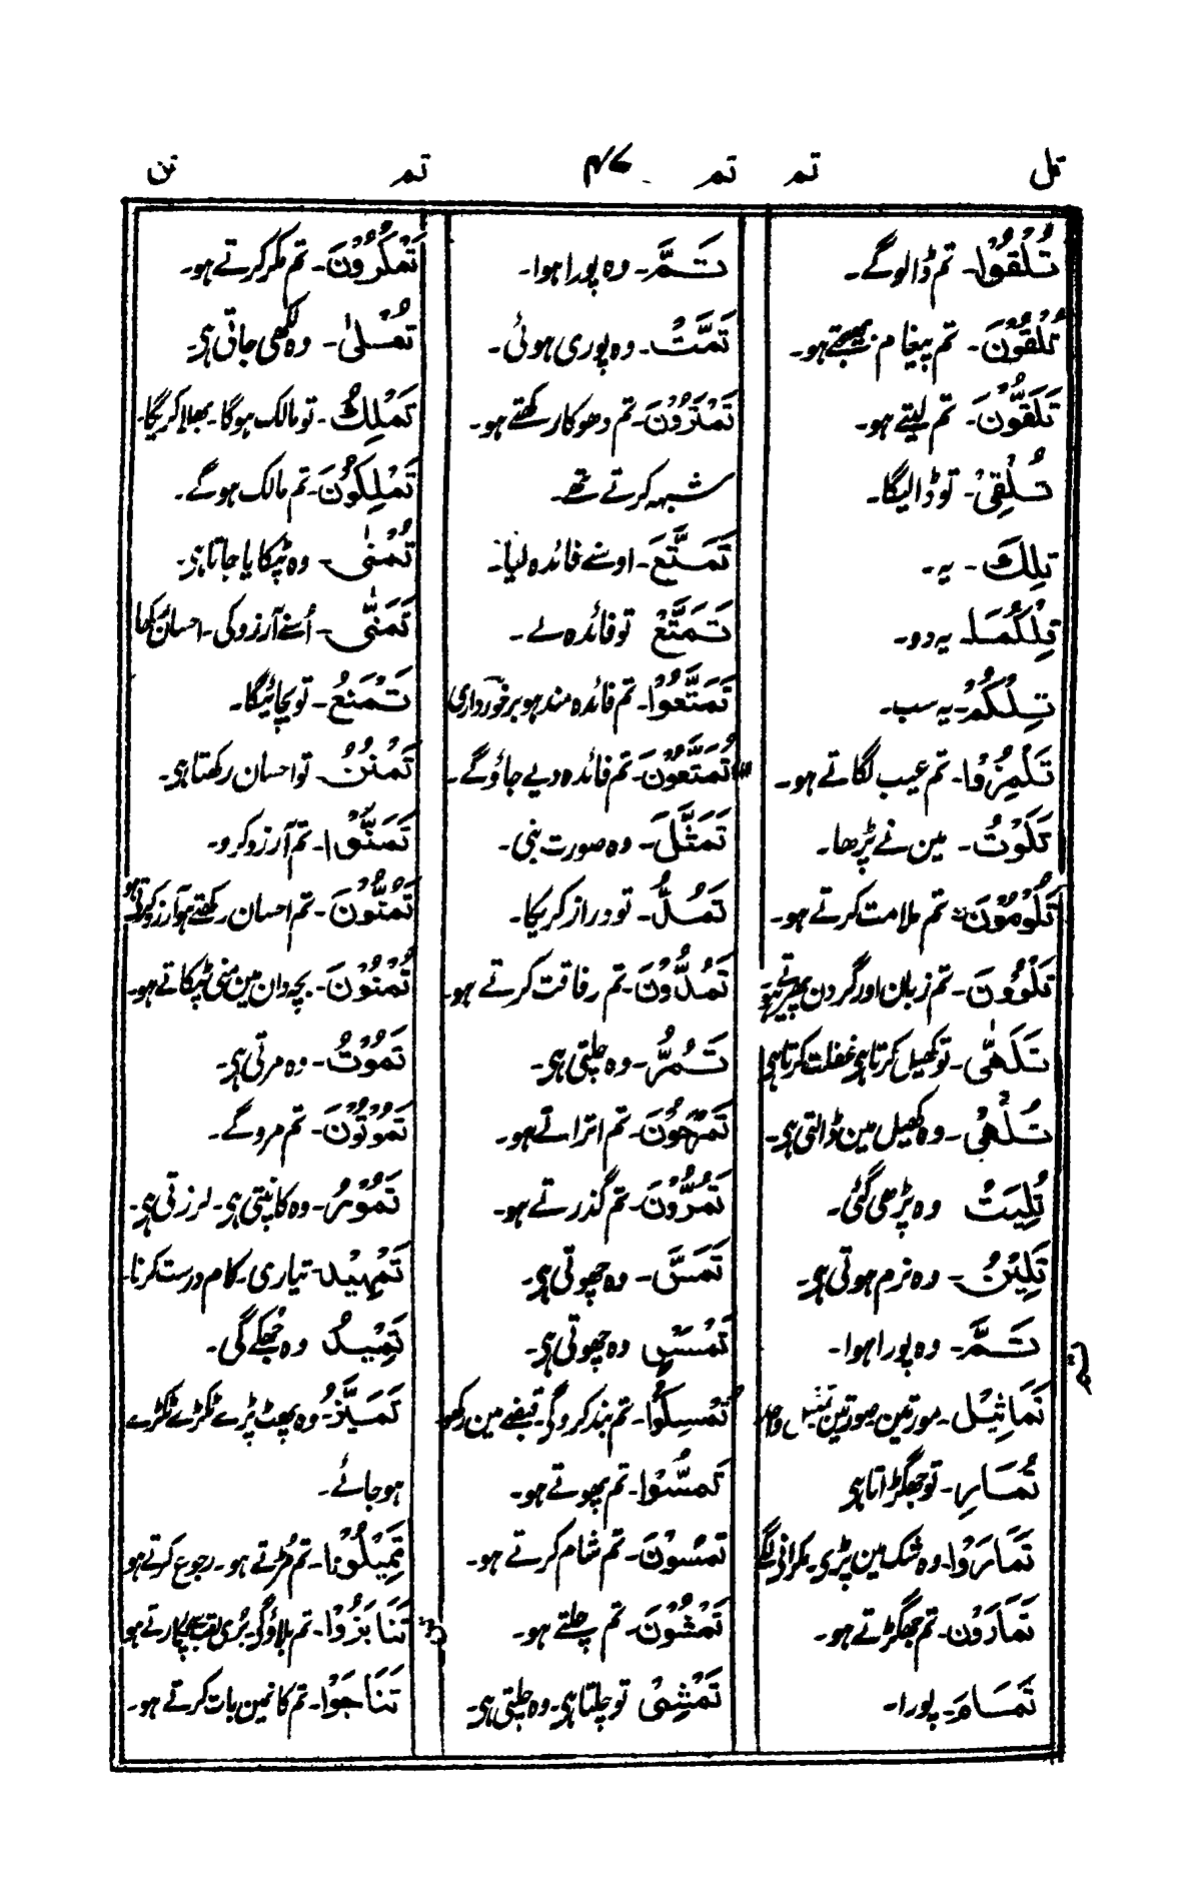 تل تم ۴۷ تم تم تن
تُلْقُوْا۔ تم ڈالوگے۔
تُلْقُوْنَ۔ تم پیغام بھیجتے ہو۔
تَلَقَّوْنَ۔ تم لیتے ہو۔
تُلْقِیْ۔ تو ڈالیگا۔
تِلْكَ۔ یہ۔
تِلْكُمَا۔ یہ دو۔
تِلْكُمْ۔ یہ سب۔
تَلْمِزُوْا۔ تم عیب لگاتے ہو۔
تَلَوْتُ۔ مین نے پڑھا۔
تَلُوْمُوْنَ۔ تم ملامت کرتے ہو۔
تَلْوُوْنَ۔ تم زبان اور گردن پھیرتے ہو
تَلَهّٰی۔ تو کھیل کرتا ہی غفلت کرتا ہی
تُلْهِیْ۔ وہ کھیل مین ڈالتی ہی۔
تُلِیَتْ وہ پڑھی گئی۔
تَلِیْنُ۔ وہ نرم ہوتی ہی۔
تَمَّ۔ وہ پورا ہوا۔
تَمَاثِیْل۔ مورتین صورتین
تُمَارِ۔ تو جھگڑاتا ہی
تَمَارَوْا۔ وہ شک مین پڑی۔ مکرانی لگے
تَمَارَوْنَ۔ تم جھگڑتے ہو۔
تَمَامَ۔ پورا۔
تَمَّ۔ وہ پورا ہوا۔
تَمَّتْ۔ وہ پوری ہوئی۔
تَمْتَرُوْنَ۔ تم دھوکا رکھتے ہو۔
شبہہ کرتے تھے۔
تَمَتَّعَ۔ اوسنے فائدہ لیا۔
تَمَتَّعْ تو فائدہ لے۔
تَمَتَّعُوْا۔ تم فائدہ مند ہو برخورداری
تُمَتَّعُوْنَ۔ تم فائدہ دیے جاؤگے۔
تَمَثَّلَ۔ وہ صورت بنی۔
تَمُدَّ۔ تو دراز کریگا۔
تَمُدُّوْنَ۔ تم رفاقت کرتے ہو۔
تَمُرُّ۔ وہ چلتی ہی۔
تَمْرَحُوْنَ۔ تم اتراتے ہو۔
تَمُرُّوْنَ۔ تم گذرتے ہو۔
تَمَسَّ۔ وہ چھوتی ہی۔
تَمْسَسْ وہ چھوتی ہی۔
تُمْسِكُوْا۔ تم بند کروگی۔ قبضے مین رکھو
تَمَسُّوْا۔ تم چھوتے ہو۔
تُمْسُوْنَ۔ تم شام کرتے ہو۔
تَمْشُوْنَ۔ تم چلتے ہو۔
تَمْشِیْ تو چلتا ہی۔ وہ چلتی ہی۔
تَمْكُرُوْنَ۔ تم مکر کرتے ہو۔
تُمْلٰی۔ وہ لکھی جاتی ہی۔
تَمْلِكُ۔ تو مالک ہوگا۔ بھلا کریگا۔
تَمْلِكُوْنَ۔ تم مالک ہوگے۔
تُمْنٰی۔ وہ ٹپکایا جاتا ہی۔
تَمَنّٰی۔ اُسنے آرزو کی۔ احسان رکھا
تَمْنَعُ۔ تو بچائیگا۔
تَمْنُنْ۔ تو احسان رکھتا ہی۔
تَمَنَّوْا۔ تم آرزو کرو۔
تَمُنُّوْنَ۔ تم احسان رکھتے ہو آرزو کرتی ہو
تُمْنُوْنَ۔ بچہ دان مین منی ٹپکاتے ہو۔
تَمُوْتُ۔ وہ مرتی ہی۔
تَمُوْتُوْنَ۔ تم مروگے۔
تَمُوْرُ۔ وہ کانپتی ہی۔ لرزتی ہی۔
تَمْهِیْد۔ تیاری۔ کام درست کرنا۔
تَمِیْدُ وہ جھکے گی۔
تَمَیَّزُ۔ وہ پھٹ پڑے ٹکڑے ٹکڑے
ہو جائے۔
تَمِیْلُوْا۔ تم مڑتے ہو۔ رجوع کرتے ہو
تَنَابَزُوْا۔ تم بلاؤگی بُری لقب سے پکارتے ہو
تَنَاجَوْا۔ تم کانمین بات کرتے ہو۔